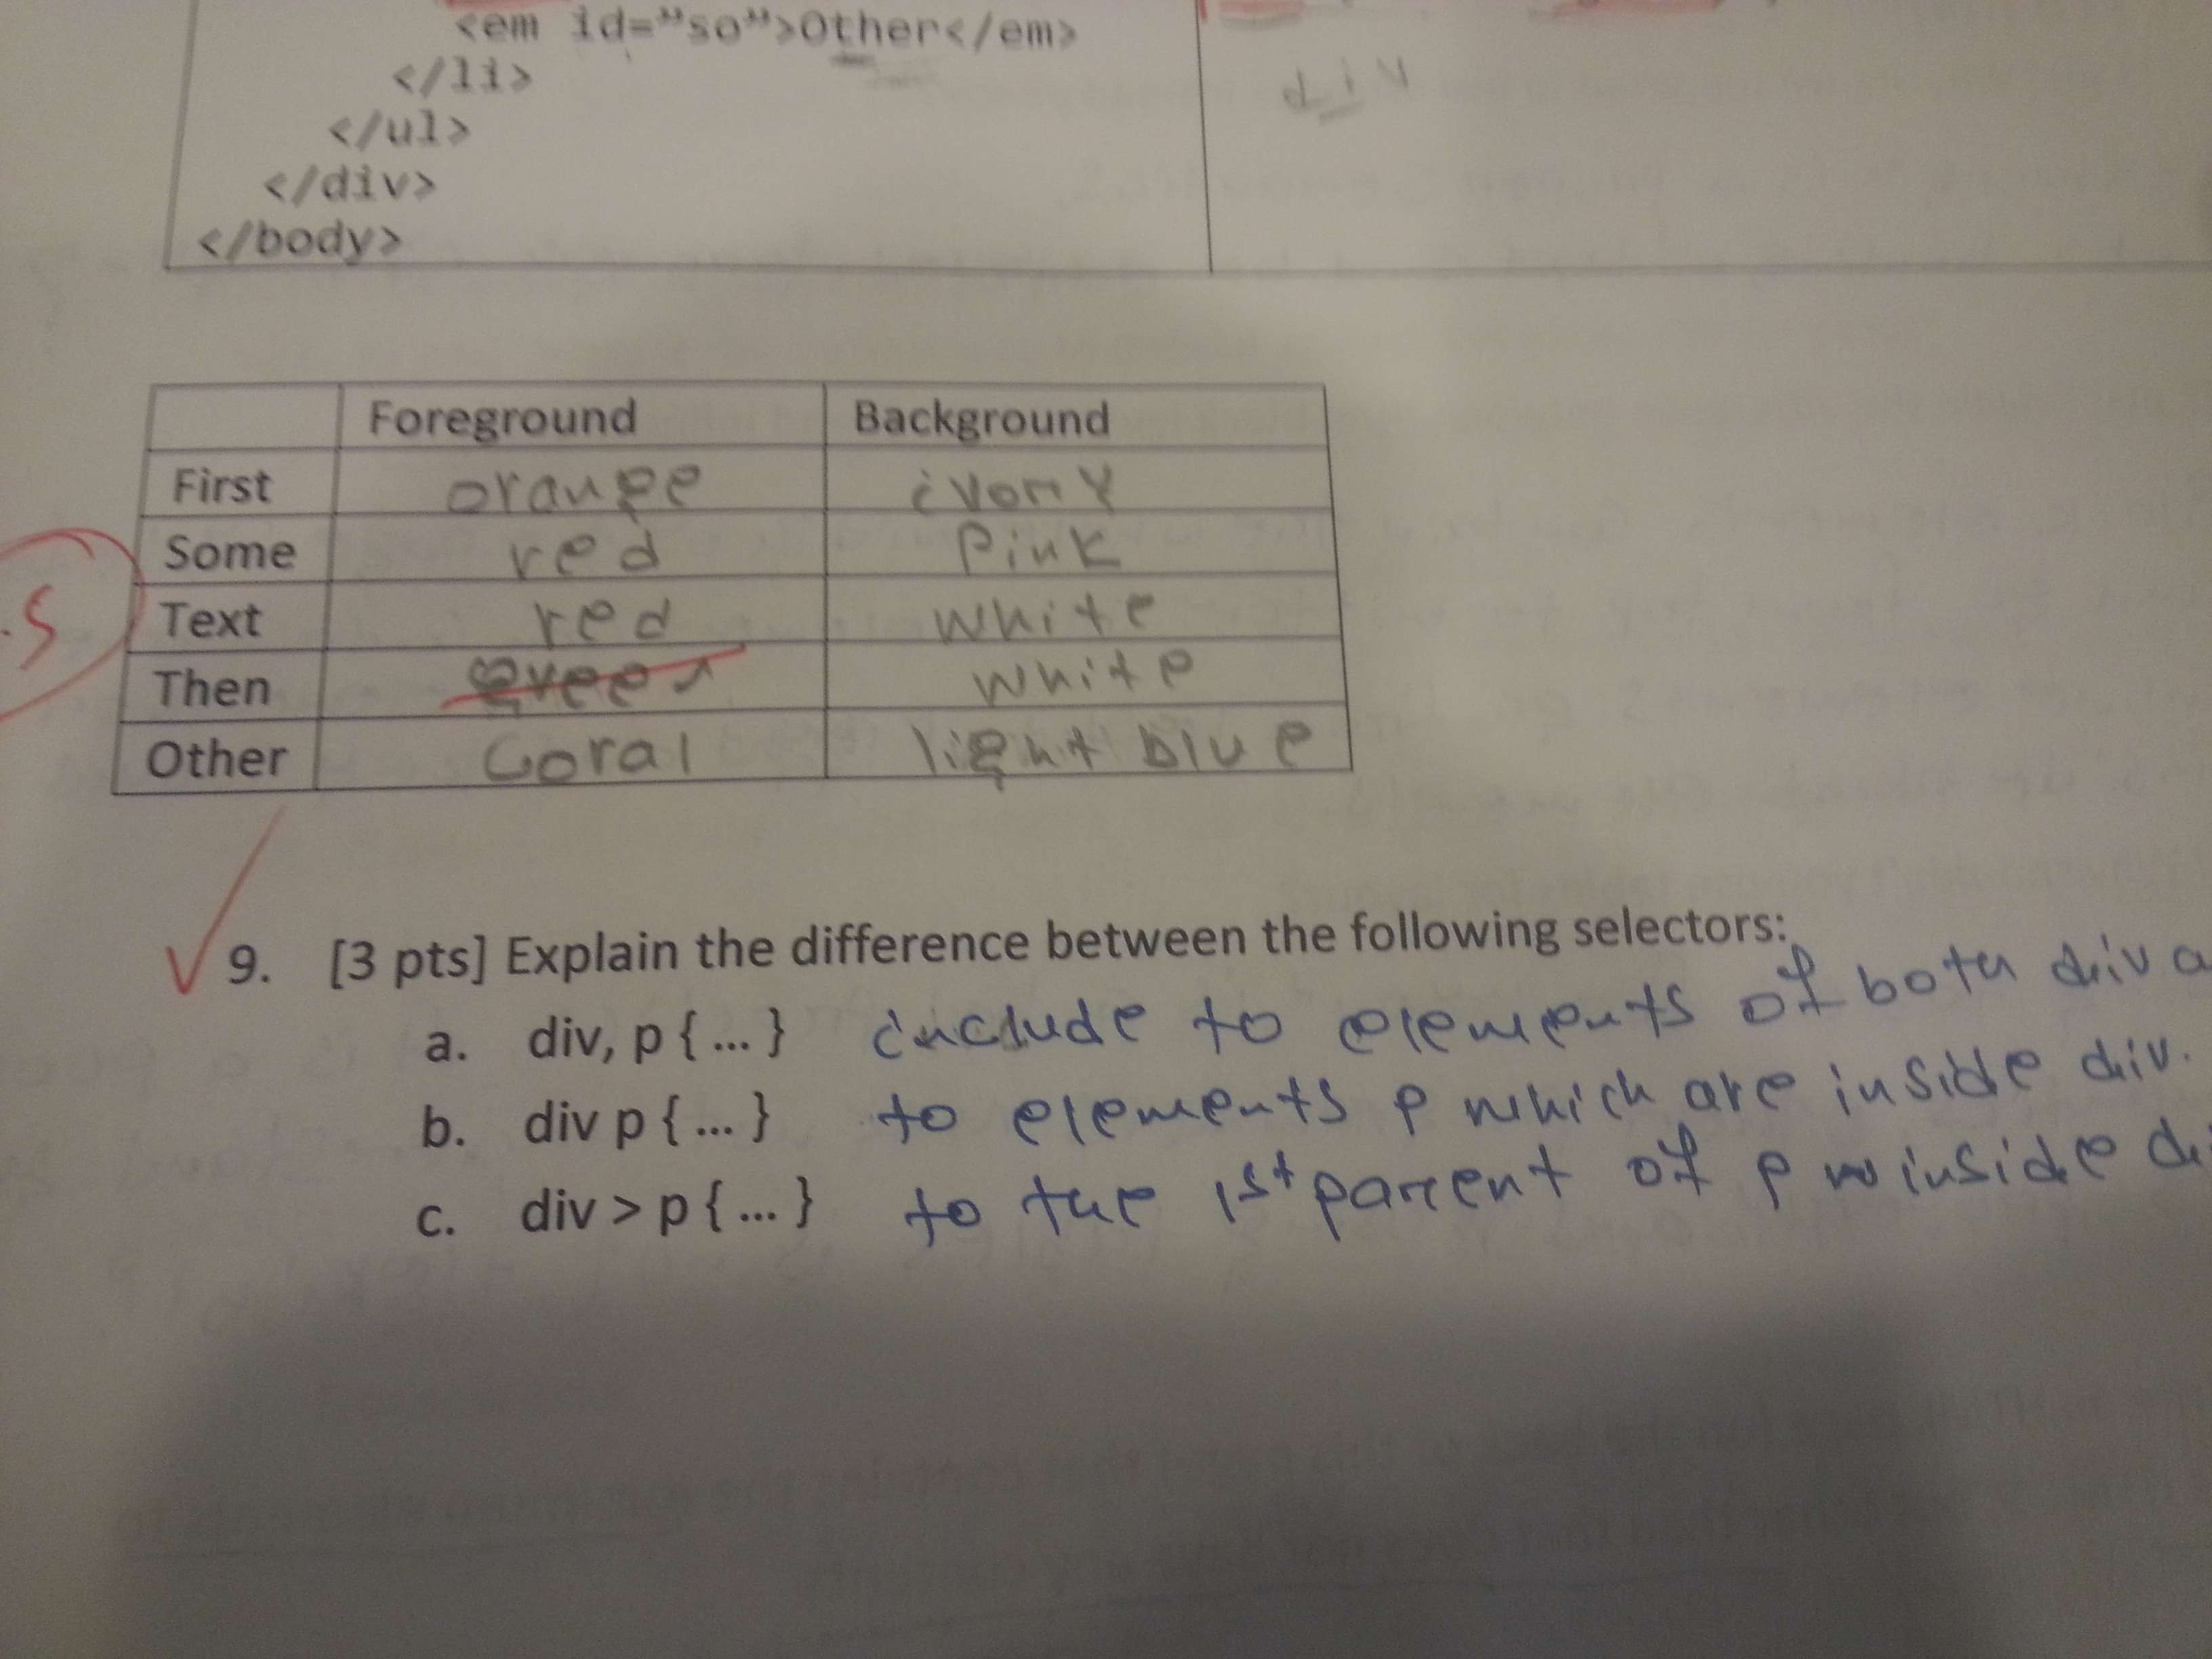 <em id="so">Other</em>
</li>
</ul>
</div>
</body>
div
Foreground Background
First orange ivory
Some red Pink
Text red white
Then green white
Other Coral light blue
.5
9. [3 pts] Explain the difference between the following selectors:
a. div, p { ... } include to elements of both div a
b. div p { ... } to elements p which are inside div.
c. div > p { ... } to the 1st parent of p inside di